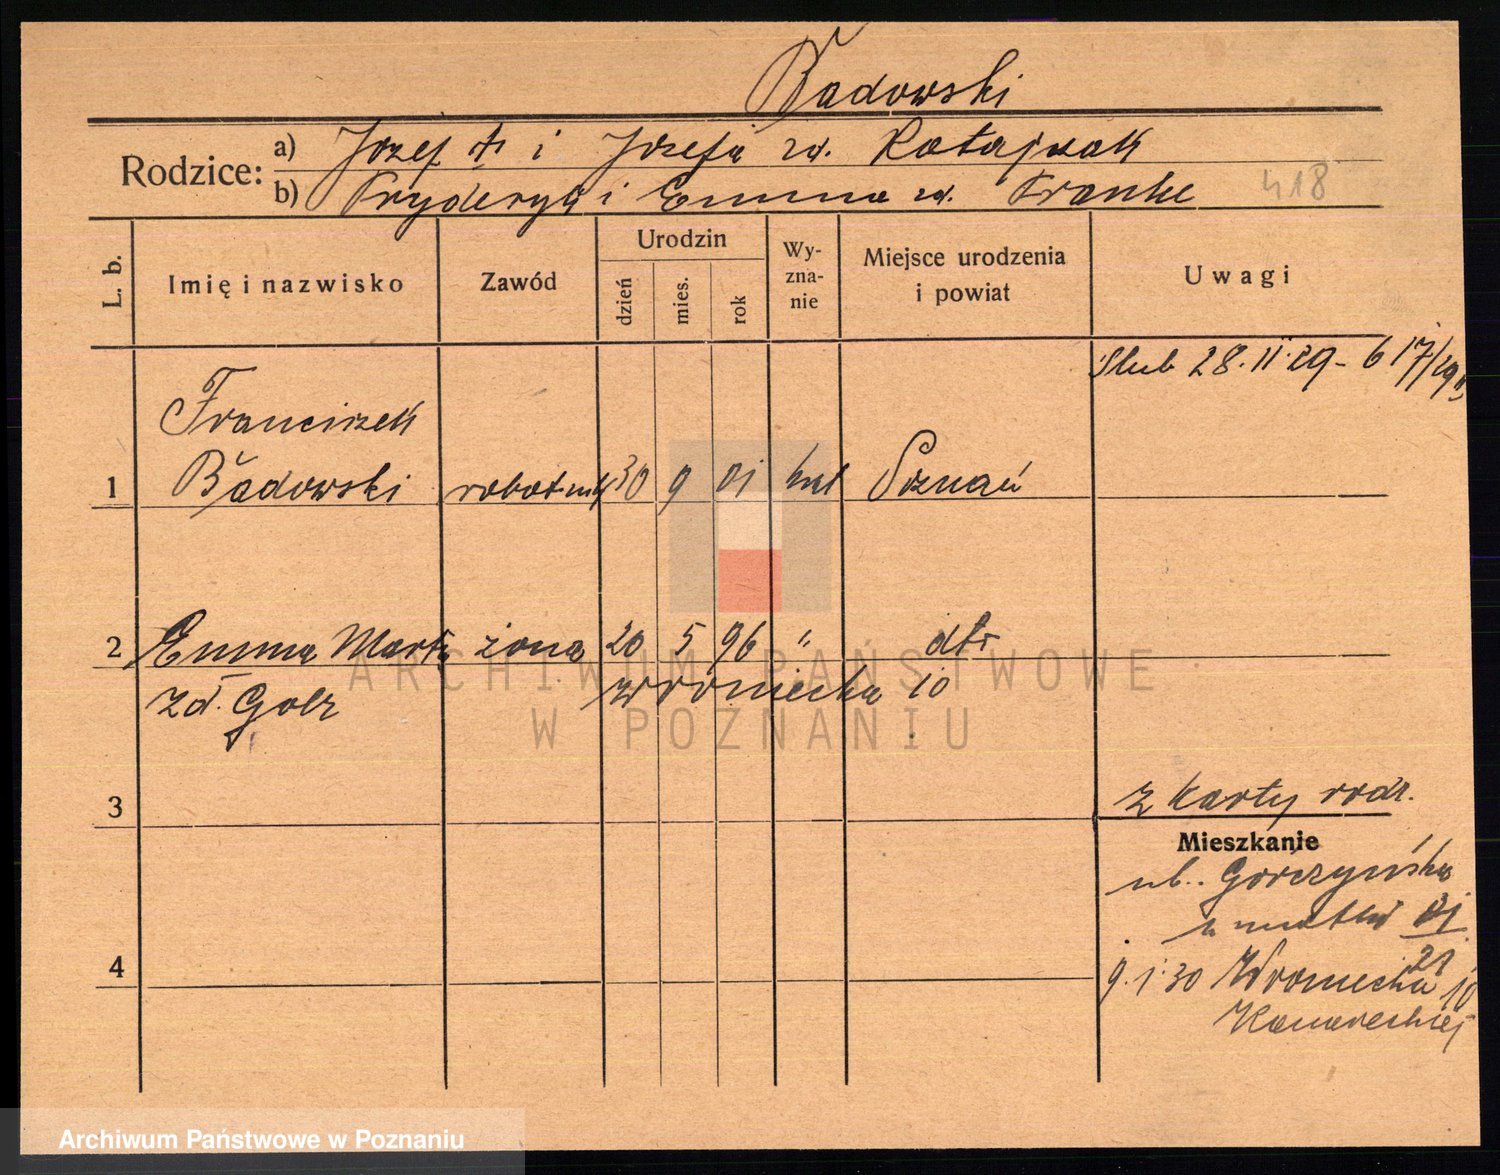 Badowski
Rodzice:
a) Józef † i Józefa zd. Ratajczak
b) Fryderyk i Emma zd. Franke
418
L. b.
Imię i nazwisko
Zawód
Urodzin
dzień
mies.
rok
Wy-
zna-
nie
Miejsce urodzenia
i powiat
Uwagi
Ślub 28.II 29 - 617/29
Franciszek
1 Badowski robotnik 30 9 01 kat Poznań
2 Emma Marta żona 20 5 96 " dtr
zd. Golz Wroniecka 10
3
z karty rodz.
Mieszkanie
ul. Gorczyńska
u matki
21
4
9.1.30 Wroniecka 10
ARCHIWUM PAŃSTWOWE
W POZNANIU
Archiwum Państwowe w Poznaniu